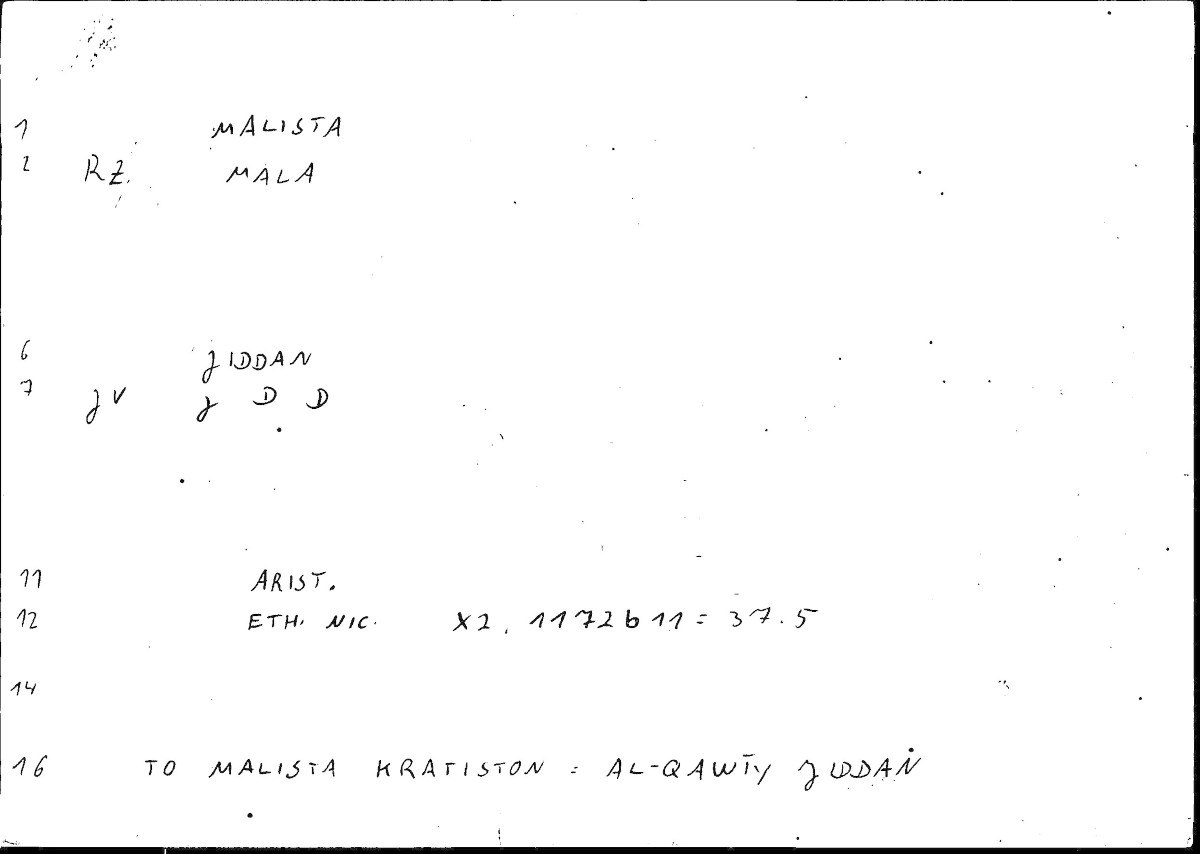 1 MALISTA
2 RZ. MALA
6 JIDDAN
7 JV J D D
11 ARIST.
12 ETH. NIC. X2, 1172b11 = 37.5
14
16 TO MALISTA KRATISTON = AL-QAWĪY JIDDAN